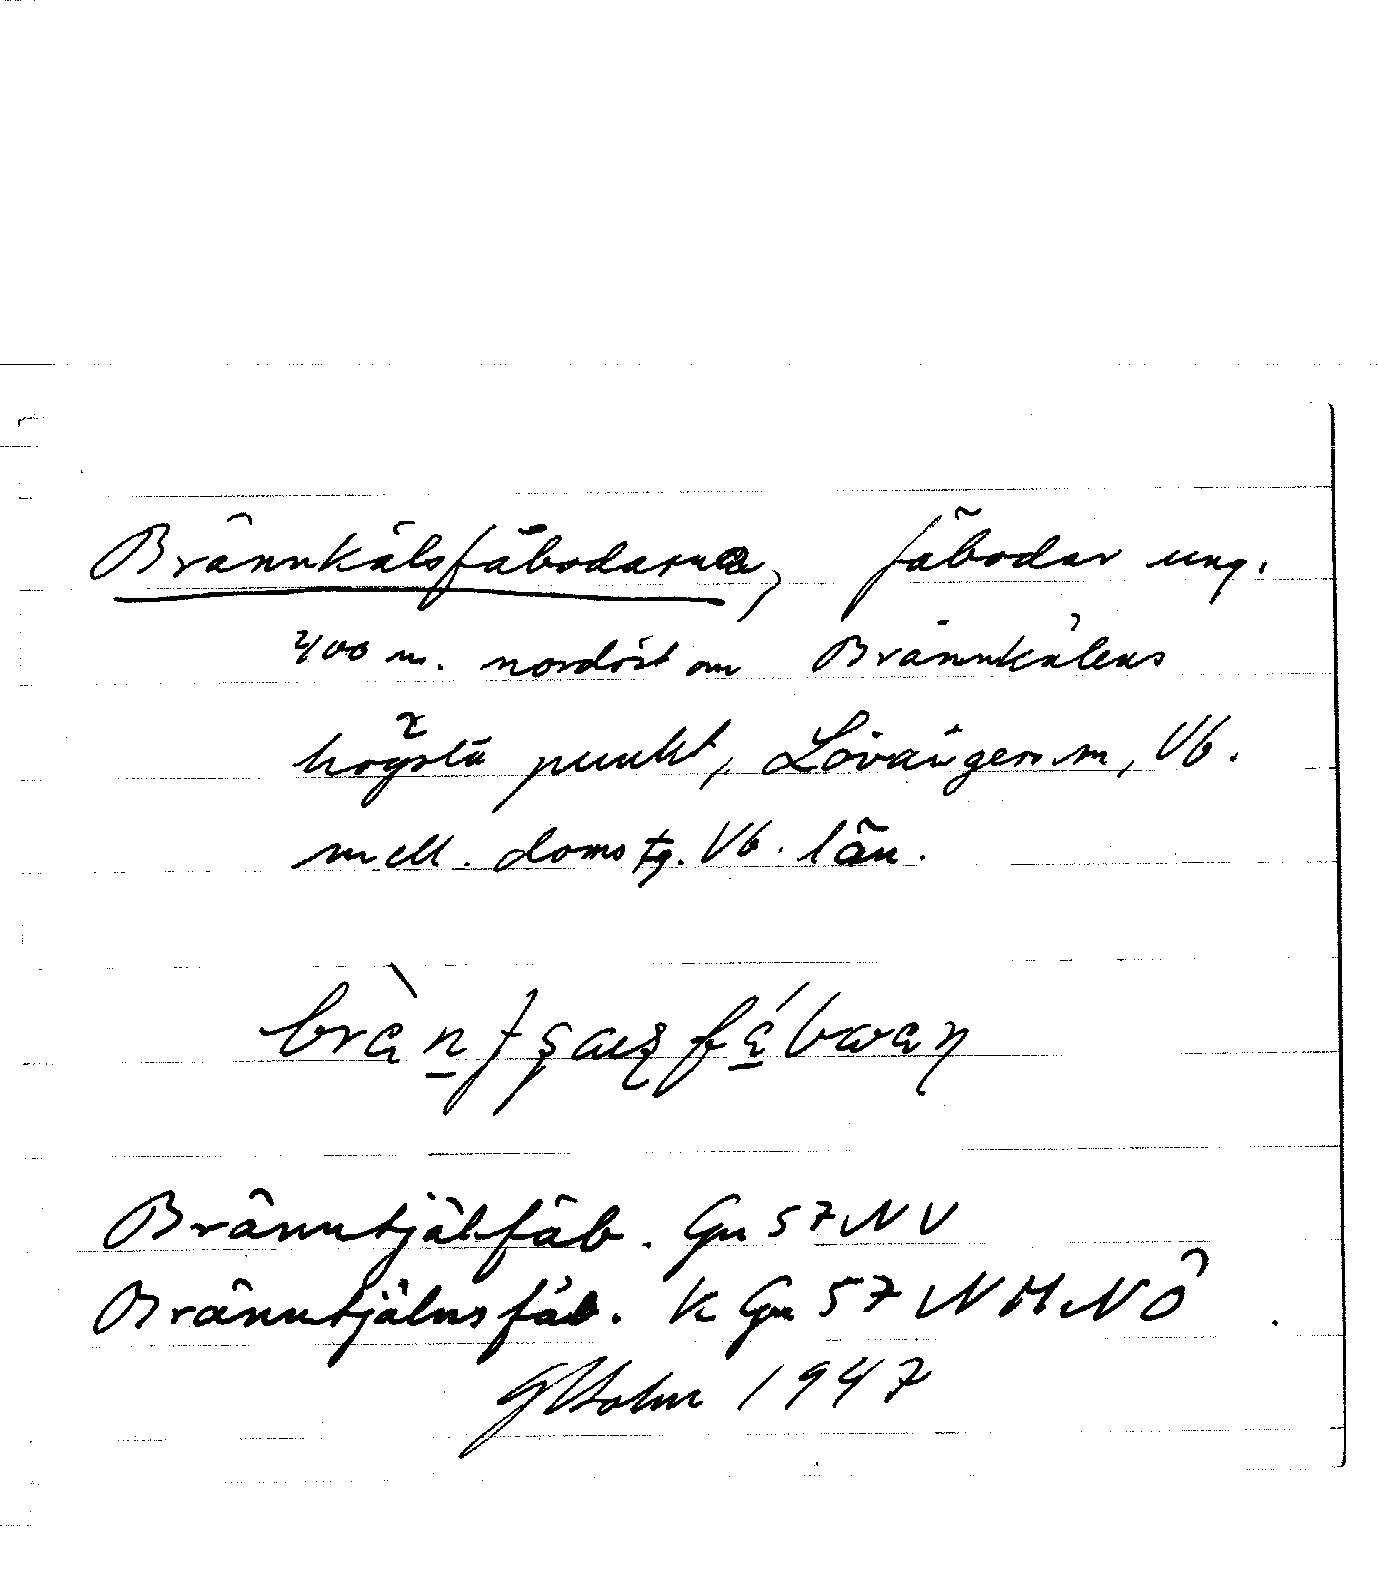 Brännkälsfäbodarna, fäbodar ung.
400 m. nordöst om Brännkälens
högsta punkt, Lövångers sn, Vb.
mell. doms tg. Vb. län.
Bränntjälfäb. Gn 57 NV
Bränntjälnsfäb. K Gn 57 NMNÖ
GHolm 1947